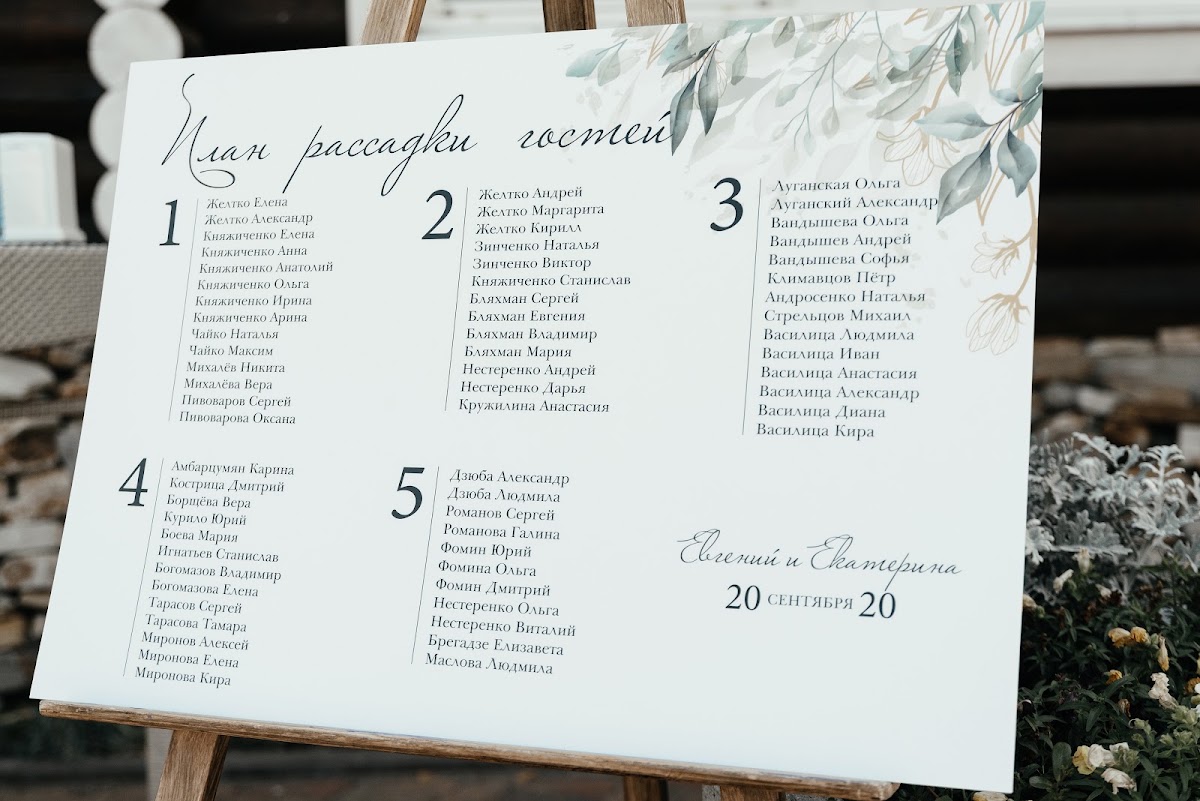 План рассадки гостей
1
Желтко Елена
Желтко Александр
Княжиченко Елена
Княжиченко Анна
Княжиченко Анатолий
Княжиченко Ольга
Княжиченко Ирина
Княжиченко Арина
Чайко Наталья
Чайко Максим
Михалёв Никита
Михалёва Вера
Пивоваров Сергей
Пивоварова Оксана
2
Желтко Андрей
Желтко Маргарита
Желтко Кирилл
Зинченко Наталья
Зинченко Виктор
Княжиченко Станислав
Бляхман Сергей
Бляхман Евгения
Бляхман Владимир
Бляхман Мария
Нестеренко Андрей
Нестеренко Дарья
Кружилина Анастасия
3
Луганская Ольга
Луганский Александр
Вандышева Ольга
Вандышев Андрей
Вандышева Софья
Климавцов Пётр
Андросенко Наталья
Стрельцов Михаил
Василица Людмила
Василица Иван
Василица Анастасия
Василица Александр
Василица Диана
Василица Кира
4
Амбарцумян Карина
Кострица Дмитрий
Борщёва Вера
Курило Юрий
Боева Мария
Игнатьев Станислав
Богомазов Владимир
Богомазова Елена
Тарасов Сергей
Тарасова Тамара
Миронов Алексей
Миронова Елена
Миронова Кира
5
Дзюба Александр
Дзюба Людмила
Романов Сергей
Романова Галина
Фомин Юрий
Фомина Ольга
Фомин Дмитрий
Нестеренко Ольга
Нестеренко Виталий
Брегадзе Елизавета
Маслова Людмила
Евгений и Екатерина
20 СЕНТЯБРЯ 20